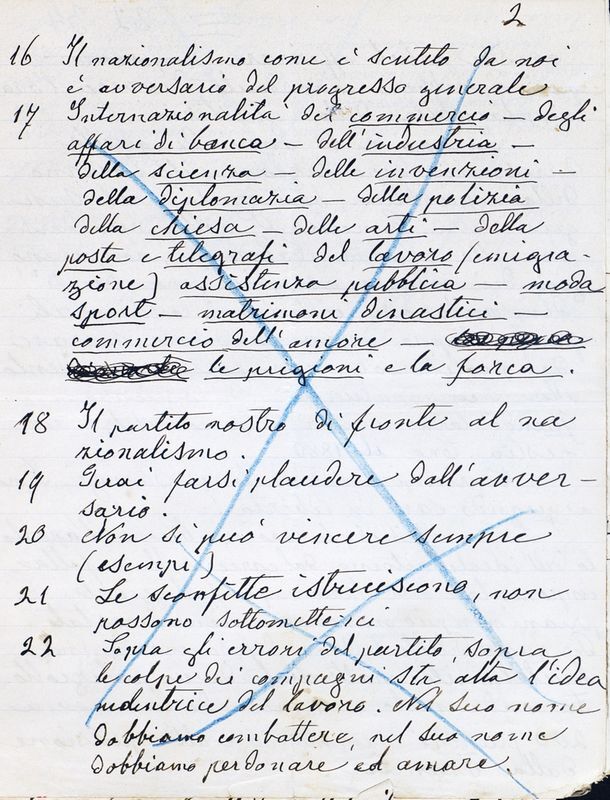 2
16 Il nazionalismo come è sentito da noi
è avversario del progresso generale
17 Internazionalita del commercio — degli
affari di banca — dell'industria —
della scienza — delle invenzioni —
della diplomazia — della polizia
della chiesa — delle arti — della
posta e telegrafi del lavoro (emigra-
zione) assistenza pubblica — moda
sport — matrimoni dinastici —
commercio dell'amore —
le prigioni e la forca.
18 Il partito nostro di fronte al na
zionalismo.
19 Guai farsi plaudire dall'avver-
sario.
20 Non si può vincere sempre
(esempi)
21 Le sconfitte istruiscono, non
possono sottometterci
22 Sopra gli errori del partito, sopra
le colpe dei compagni sta alta l'idea
redentrice del lavoro. Nel suo nome
dobbiamo combattere, nel suo nome
dobbiamo perdonare ed amare.